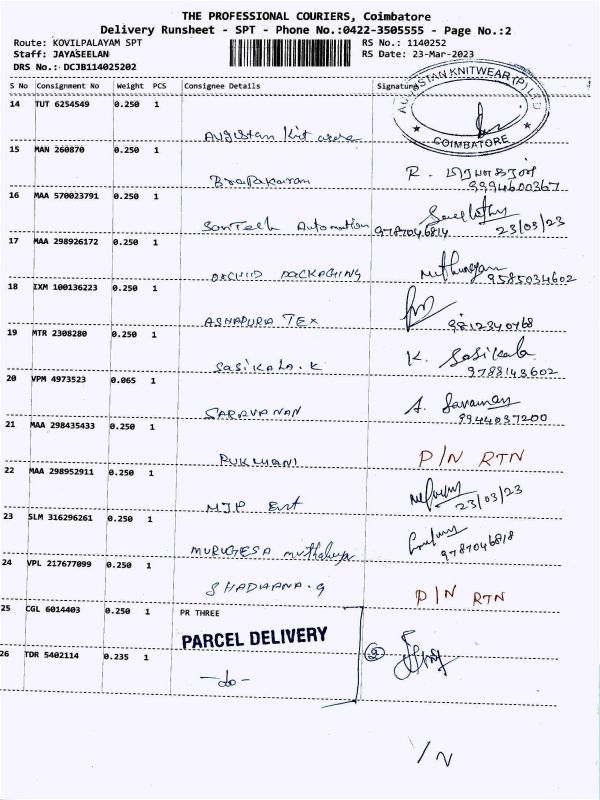 THE PROFESSIONAL COURIERS, Coimbatore
Delivery Runsheet - SPT - Phone No.:0422-3505555 - Page No.:2
Route: KOVILPALAYAM SPT RS No.: 1140252
Staff: JAYASEELAN RS Date: 23-Mar-2023
DRS No.: DCJB114025202
S No Consignment No Weight PCS Consignee Details Signature
14 TUT 6254549 0.250 1
AUGUSTAN KNITWEAR (P) LTD
COIMBATORE
15 MAN 260870 0.250 1
R.
9994600367
16 MAA 570023791 0.250 1
SonTech Automation 9787046814 23/03/23
17 MAA 298926172 0.250 1
ORCHID PACKAGING 9585034602
18 IXM 100136223 0.250 1
ASHAPURA TEX 9812340768
19 MTR 2308280 0.250 1
SASIKALA.K K. Sasikala
9788143602
20 VPM 4973523 0.065 1
SARAVANAN 9944037200
21 MAA 298435433 0.250 1
RUKMANI P/N RTN
22 MAA 298952911 0.250 1
MJP Ent 23/03/23
23 SLM 316296261 0.250 1
MURUGESA 9787046818
24 VPL 217677099 0.250 1
P/N RTN
25 CGL 6014403 0.250 1 PR THREE
PARCEL DELIVERY
26 TDR 5402114 0.235 1 2
-do-
/N